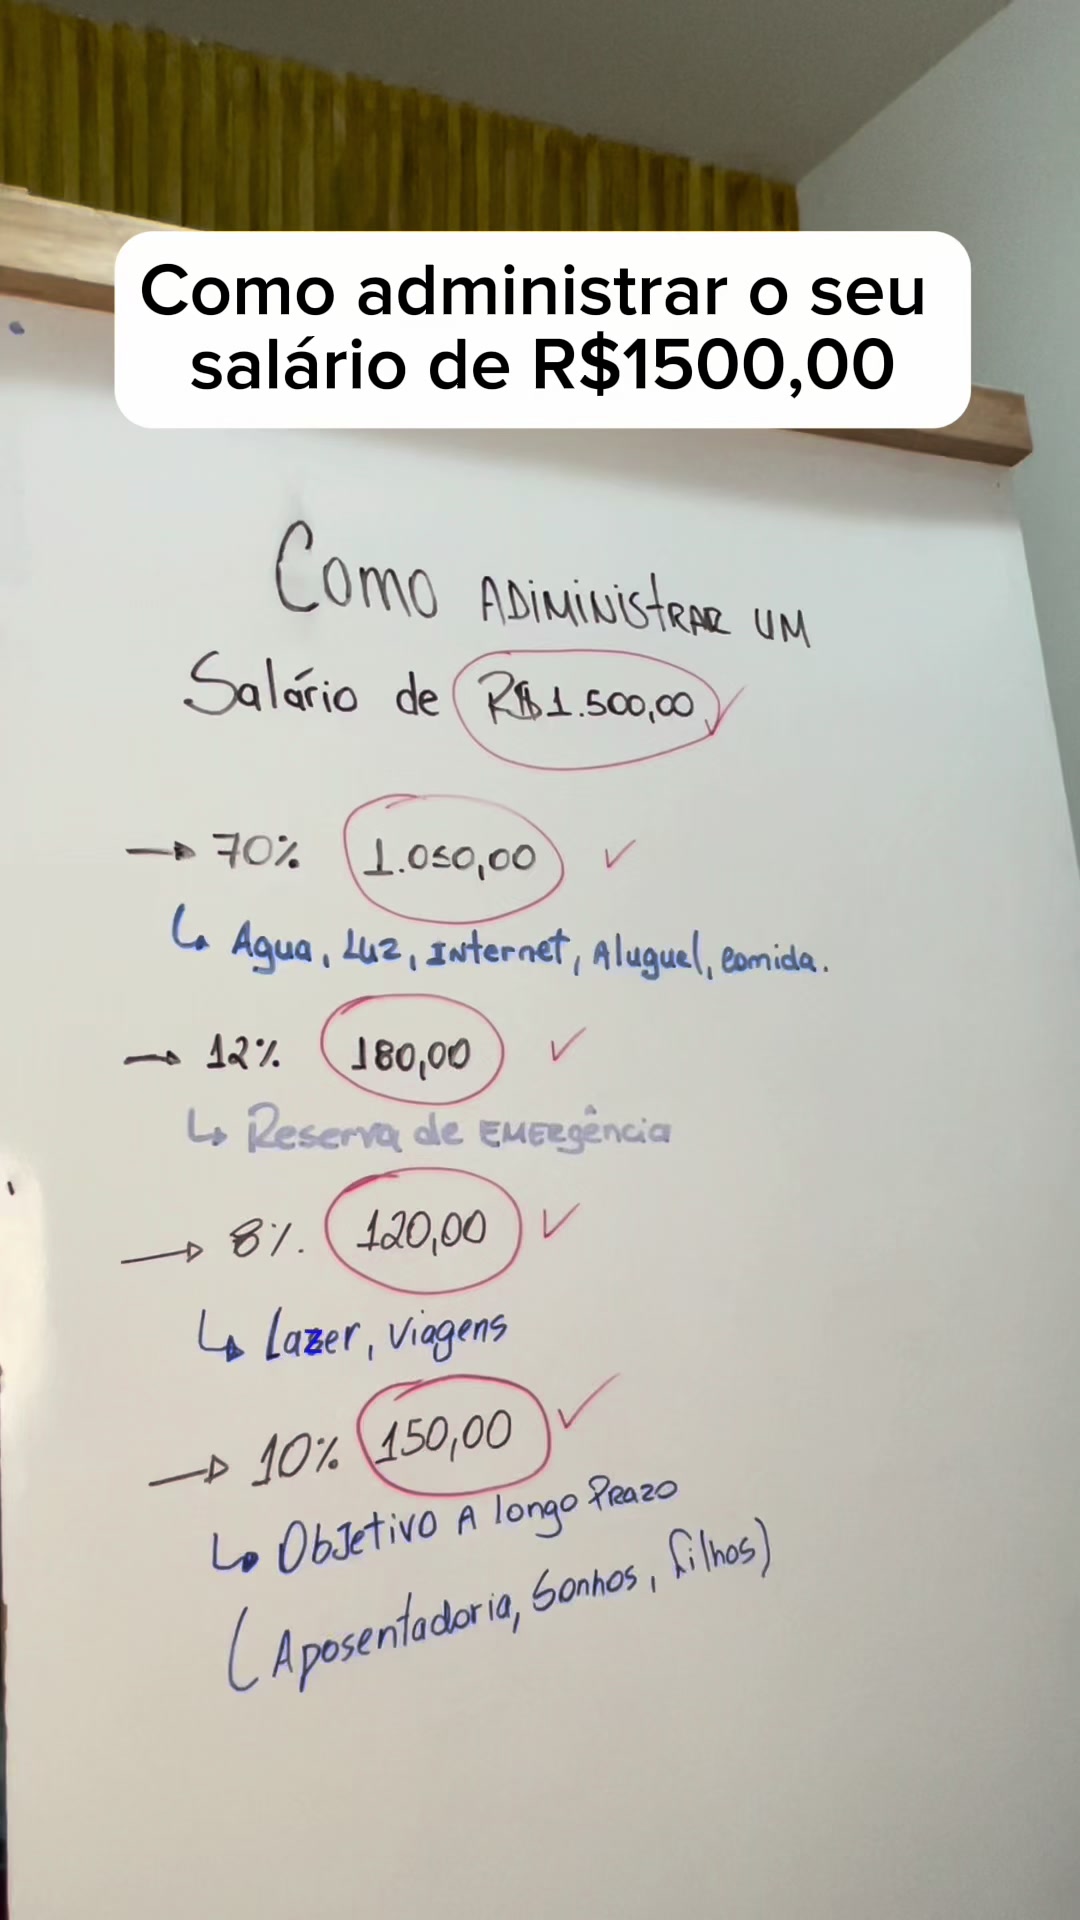 Como administrar o seu
salário de R$1500,00
Como ADiMINIStRAR UM
Salário de R$1.500,00
→ 70% 1.050,00 ✓
↳ Agua, Luz, INternet, Aluguel, comida.
→ 12% 180,00 ✓
↳ Reserva de EMERgência
→ 8%. 120,00 ✓
↳ Lazer, Viagens
→ 10% 150,00 ✓
↳ ObJetivo A longo PRAZO
(Aposentadoria, Sonhos, filhos)